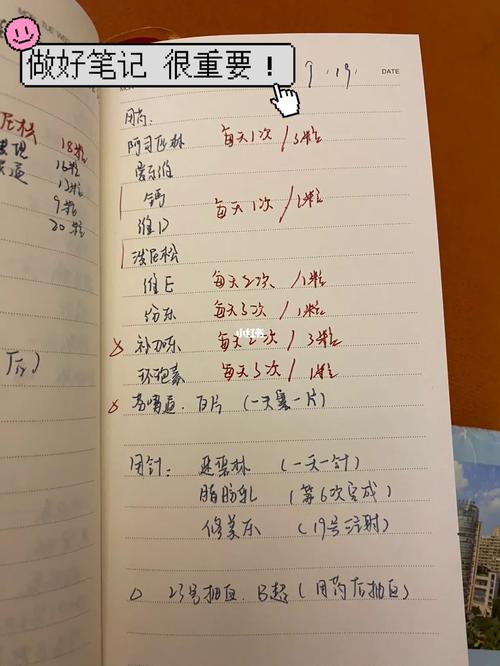 做好笔记 很重要!
9.19.
DATE
用药:
阿司匹林 每天1次/3粒
爱乐维
钙 每天1次/1粒
维D
泼尼松
维E 每天2次/1粒
芬乐 每天3次/1粒
补加乐 每天2次/3粒
环孢素 每天3次/1粒
百片 (一天塞一片)
用针: (一天一针)
脂肪乳 (第6次完成)
修美乐 (19号注射)
23号抽血 B超 (用药后抽血)
尼松 18粒
16粒
13粒
9粒
20粒
后)
小红书